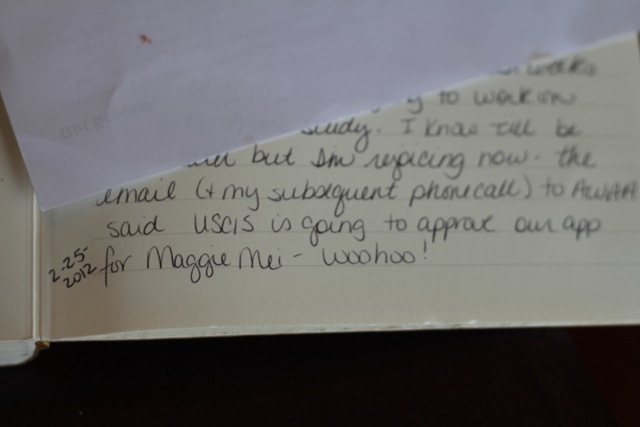 weeks
to work on
study. I know I'll be
but I'm rejoicing now - the
email (+ my subsequent phone call) to AWAA
said USCIS is going to approve our app
2-25-2012 for Maggie Mei - Woohoo!